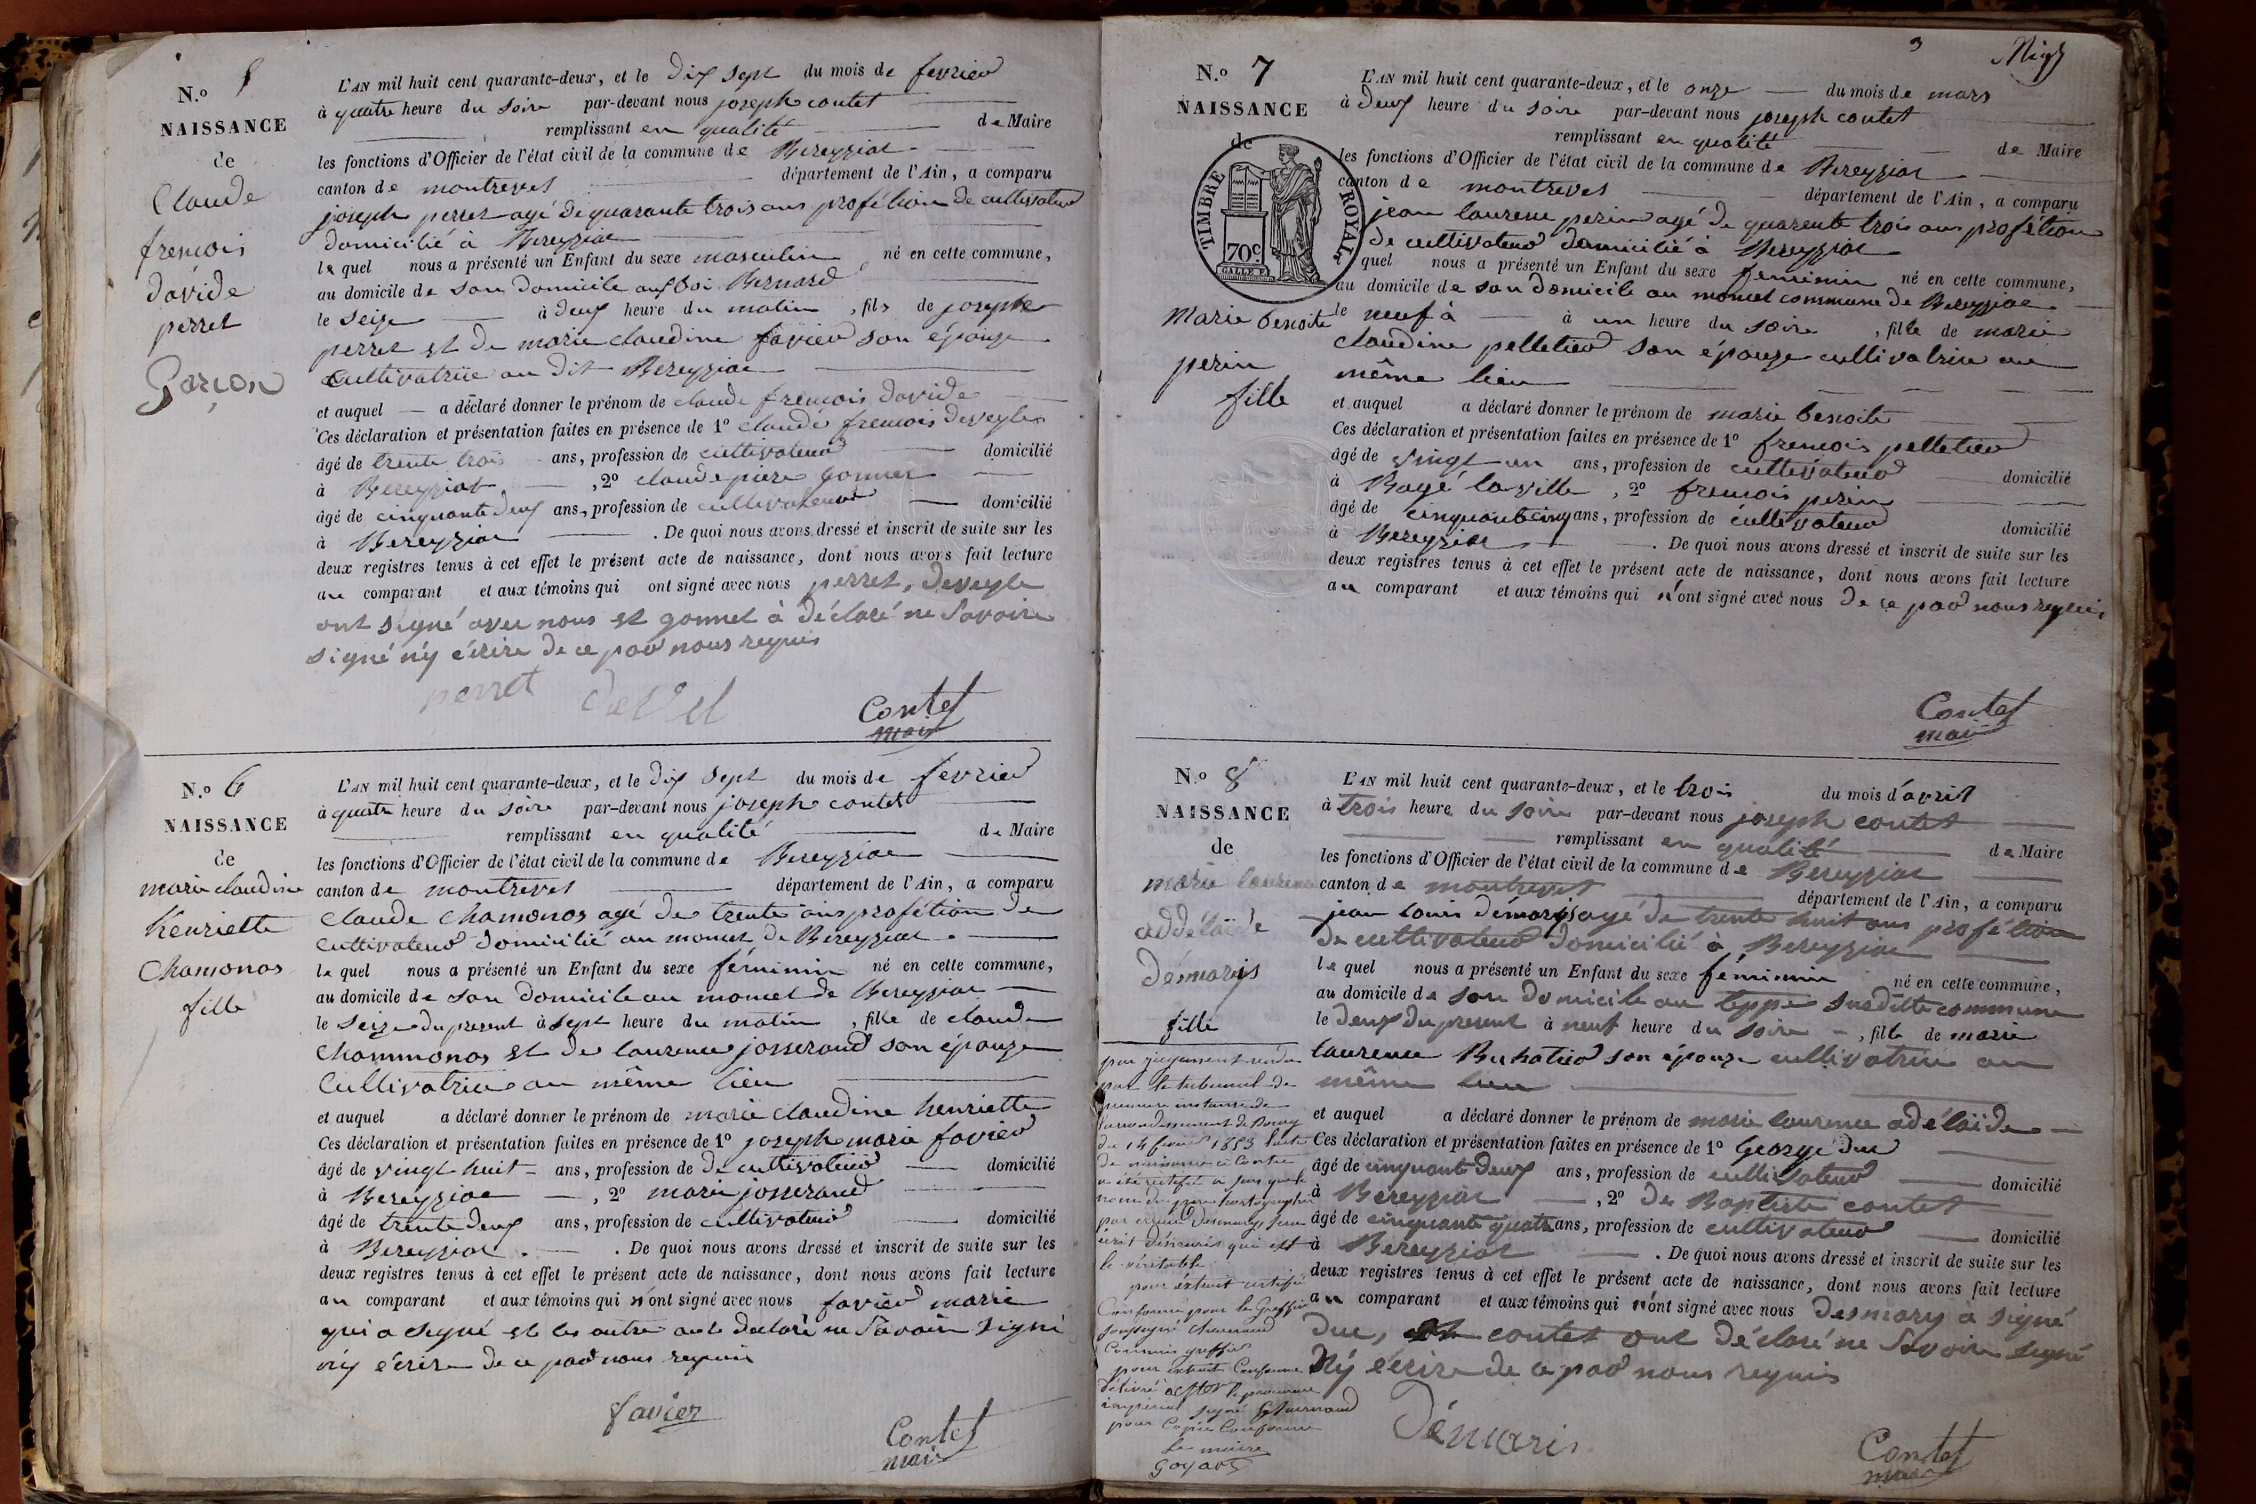 N.º 5
NAISSANCE
de
Claude
frencois
davide
perret
Garçon
L'AN mil huit cent quarante-deux, et le dix sept du mois de fevrier
à quatre heure du soire par-devant nous joseph contet
remplissant en qualité de Maire
les fonctions d'Officier de l'état civil de la commune de Bereyziat
canton de montrevel département de l'Ain, a comparu
joseph perret agé de quarante trois ans profétion de cultivateur
domicilié à Bereyziat
le quel nous a présenté un Enfant du sexe masculin né en cette commune,
au domicile de son domicile aux boi Bernard
le seize à deux heure du matin, fils de joseph
perret et de marie claudine favier son épouze
cultivatrice au dit Bereyziat
et auquel a déclaré donner le prénom de claude frencois davide
Ces déclaration et présentation faites en présence de 1º claude frencois deveyle
âgé de trente trois ans, profession de cultivateur domicilié
à Bereyziat, 2º claude piere gonnet
âgé de cinquante deux ans, profession de cultivateur domicilié
à Bereyziat. De quoi nous avons dressé et inscrit de suite sur les
deux registres tenus à cet effet le présent acte de naissance, dont nous avons fait lecture
au comparant et aux témoins qui ont signé avec nous perret, deveyle
ont signé avec nous et gonnet à déclaré ne savoire
signé n'y écrire de ce par nous requis
perret
Contet
maire
N.º 6
NAISSANCE
de
marie claudine
henriette
Chamonas
fille
L'AN mil huit cent quarante-deux, et le dix sept du mois de fevrier
à quatre heure du soire par-devant nous joseph contet
remplissant en qualité de Maire
les fonctions d'Officier de l'état civil de la commune de Bereyziat
canton de montrevel département de l'Ain, a comparu
Claude Chamonas agé de trente ans profétion de
cultivateur domicilié au moncet de Bereyziat
le quel nous a présenté un Enfant du sexe féminin né en cette commune,
au domicile de son domicile au moncet de Bereyziat
le seize du present à sept heure du matin, fille de claude
Chammonas et de laurence josserand son épouze
Cultivatrice au même lieu
et auquel a déclaré donner le prénom de marie claudine henriette
Ces déclaration et présentation faites en présence de 1º joseph marie favier
âgé de vingt huit ans, profession de de cultivateur domicilié
à Bereyziat, 2º marie josserand
âgé de trente deux ans, profession de cultivateur domicilié
à Bereyziat. De quoi nous avons dressé et inscrit de suite sur les
deux registres tenus à cet effet le présent acte de naissance, dont nous avons fait lecture
au comparant et aux témoins qui n'ont signé avec nous favier marie
qui a signé et les autre ont déclaré ne savoir signé
n'y écrire de ce par nous requis
favier
Contet
maire
3
N.º 7
NAISSANCE
de
TIMBRE ROYAL
70 C
Marie benoite
perin
fille
L'AN mil huit cent quarante-deux, et le onze du mois de mars
à deux heure du soire par-devant nous joseph contet
remplissant en qualité de Maire
les fonctions d'Officier de l'état civil de la commune de Bereyziat
canton de montrevel département de l'Ain, a comparu
jean laurent perin agé de quarente trois ans profétion
de cultivateur domicilié à Bereyziat
quel nous a présenté un Enfant du sexe feminin né en cette commune,
au domicile de son domicile au moncet commune de Bereyziat
le neuf à à un heure du soire, fille de marie
claudine pelletier son épouze cultivatrice au
même lieu
et auquel a déclaré donner le prénom de marie benoite
Ces déclaration et présentation faites en présence de 1º frencois pelletier
âgé de vingt un ans, profession de cultivateur domicilié
à Bagé la ville, 2º frencois perin
âgé de cinquante cinq ans, profession de cultivateur domicilié
à Bereyziat. De quoi nous avons dressé et inscrit de suite sur les
deux registres tenus à cet effet le présent acte de naissance, dont nous avons fait lecture
au comparant et aux témoins qui n'ont signé avec nous de ce par nous requis
Contet
maire
N.º 8
NAISSANCE
de
marie laurence
addélaïde
démaris
fille
L'AN mil huit cent quarante-deux, et le trois du mois d'avril
à trois heure du soire par-devant nous joseph contet
remplissant en qualité de Maire
les fonctions d'Officier de l'état civil de la commune de Bereyziat
canton de montrevel département de l'Ain, a comparu
jean louis démaris agé de trente huit ans profétion
de cultivateur domicilié à Bereyziat
le quel nous a présenté un Enfant du sexe féminin né en cette commune,
au domicile de son domicile au teppe susditte commune
le deux du present à neuf heure du soire, fille de marie
laurence Buhatier son épouze cultivatrice au
même lieu
et auquel a déclaré donner le prénom de marie laurence adélaïde
Ces déclaration et présentation faites en présence de 1º George duc
âgé de cinquante deux ans, profession de cultivateur domicilié
à Bereyziat, 2º de Baptiste contet
âgé de cinquante quatre ans, profession de cultivateur domicilié
à Bereyziat. De quoi nous avons dressé et inscrit de suite sur les
deux registres tenus à cet effet le présent acte de naissance, dont nous avons fait lecture
au comparant et aux témoins qui n'ont signé avec nous desmary à signé
duc, et contet ont déclaré ne savoire signé
n'y écrire de ce par nous requis
Démaris
Contet
maire
par jugement rendu
par le tribunal de
premiere instance de
l'arrondissement de Bourg
du 14 1853 l'acte
de naissance ci contre
a été rectifié
nom
par erreur Desmary sera
écrit Démaris qui est
le véritable
pour extrait certifié
Conforme pour le Greffier
soussigné
Commis greffier
pour extrait Conforme
délivré à le procureur
impérial signé
pour Copie Conforme
Le maire